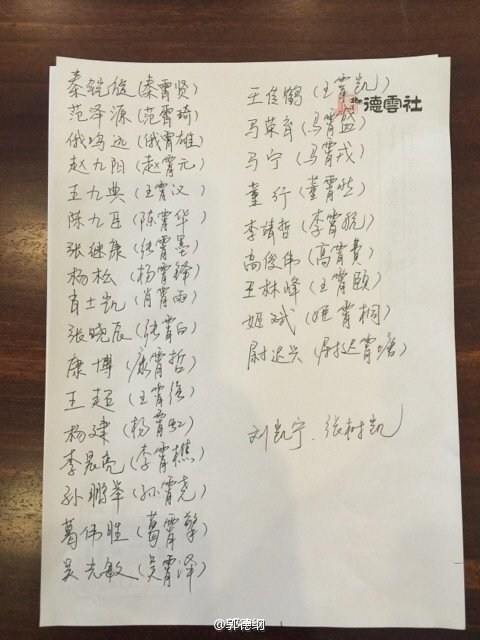 秦鎧俊(秦霄贤)
范泽源(范霄琦)
俄鸣远(俄霄雄)
赵九阳(赵霄元)
王九典(王霄汉)
陈九臣(陈霄华)
张继康(张霄墨)
杨松(杨霄锋)
肖士凯(肖霄雨)
张晓辰(张霄白)
康博(康霄哲)
王超(王霄强)
杨建(杨霄虹)
李晨亮(李霄樵)
孙鹏举(孙霄尧)
葛伟胜(葛霄擎)
吴光敏(吴霄泽)
王佳鹤(王霄凯)
德雲社
马荣育(马霄盛)
马宁(马霄戎)
董行(董霄然)
李靖哲(李霄航)
高俊伟(高霄費)
王林峰(王霄颐)
姬斌(姬霄桐)
尉迟兴(尉迟霄塘)
刘凯宁、张树凯
@郭德纲